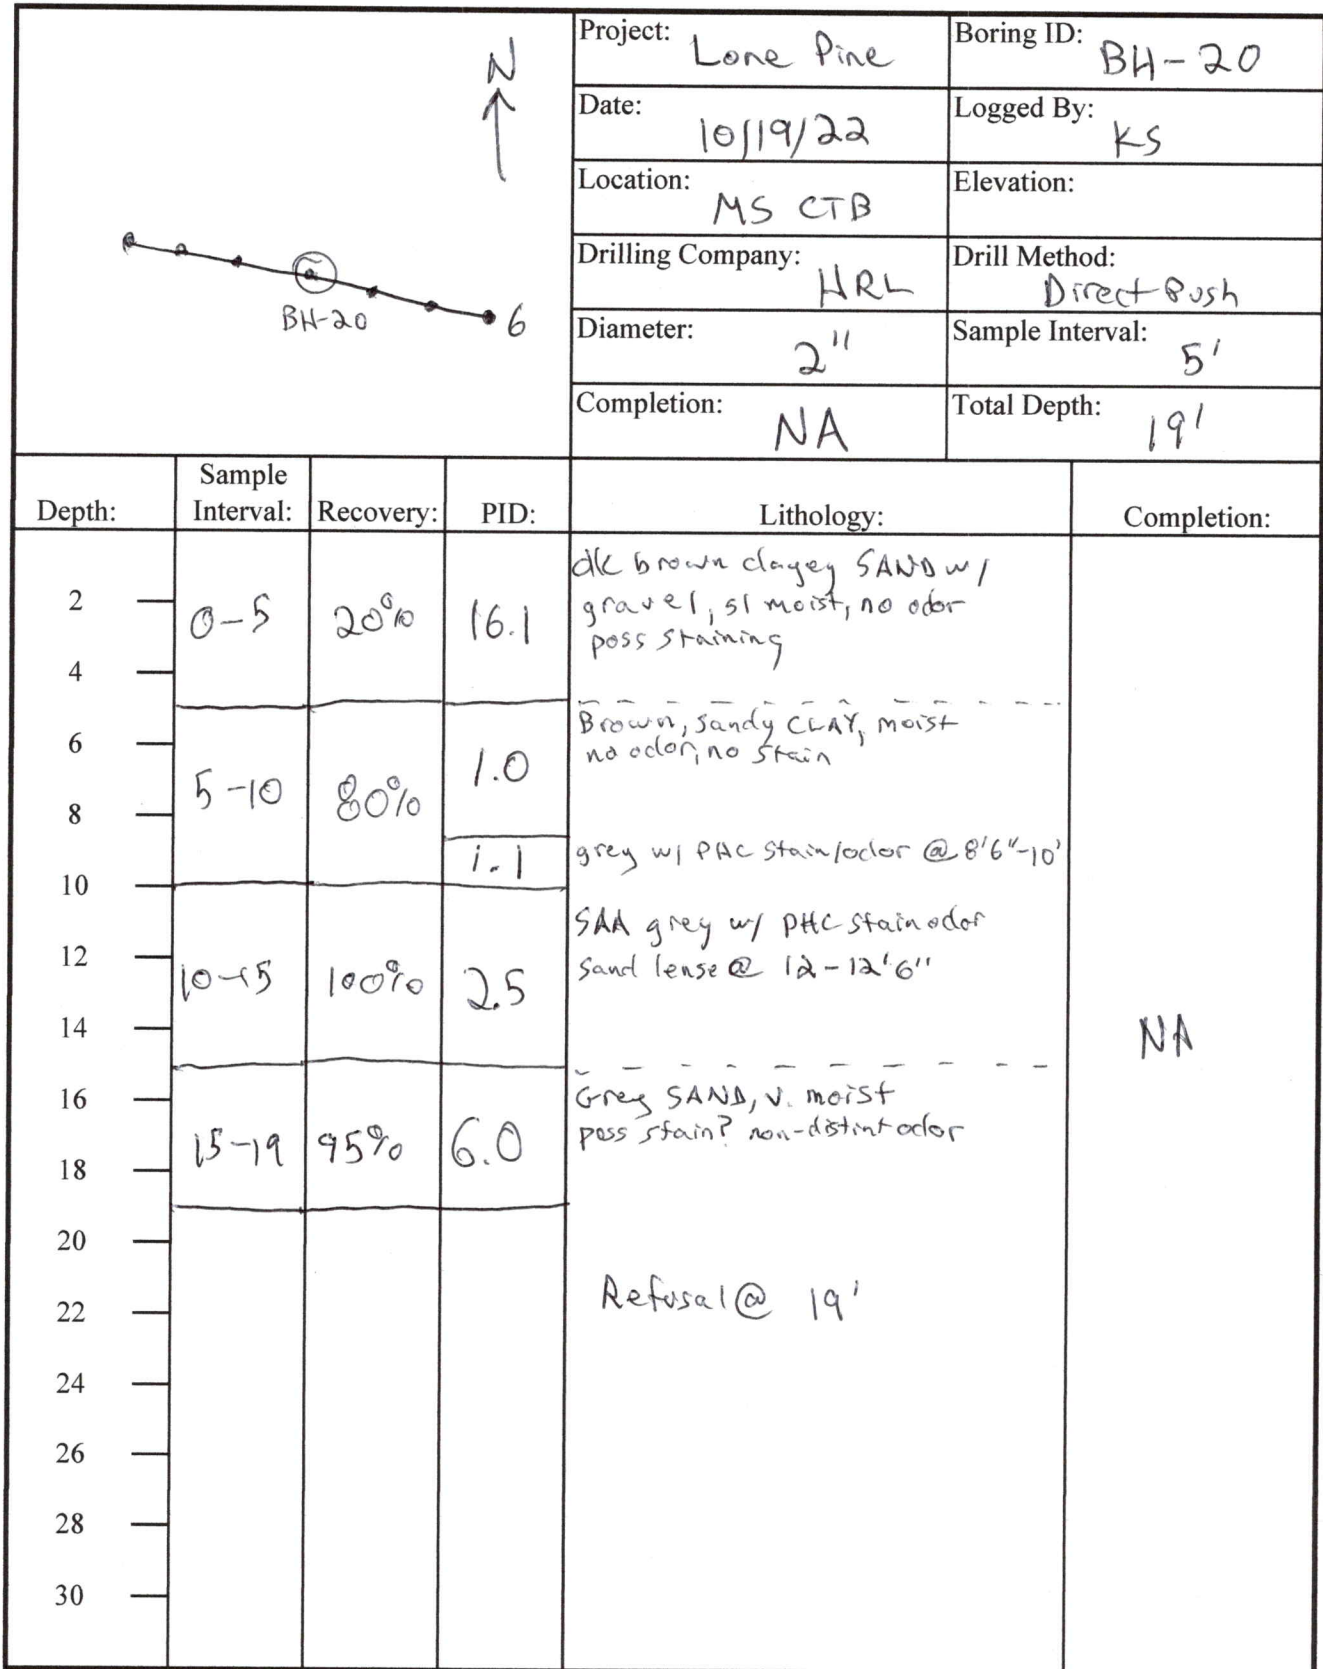 N
BH-20
6
Project: Lone Pine
Boring ID: BH-20
Date: 10/19/22
Logged By: KS
Location: MS CTB
Elevation:
Drilling Company: HRL
Drill Method: Direct Push
Diameter: 2"
Sample Interval: 5'
Completion: NA
Total Depth: 19'
Depth: Sample Interval: Recovery: PID: Lithology: Completion:
dk brown clayey SAND w/
2
0-5 20% 16.1
gravel, sl moist, no odor
poss staining
4
Brown, sandy CLAY, moist
6
no odor, no stain
1.0
5-10 80%
8
1.1 grey w/ PHC stain/odor @ 8'6"-10'
10
SAA grey w/ PHC stain odor
12
sand lense @ 12-12'6"
10-15 100% 2.5
14
NA
16
Grey SAND, v. moist
poss stain? non-distint odor
15-19 95% 6.0
18
20
22
Refusal @ 19'
24
26
28
30